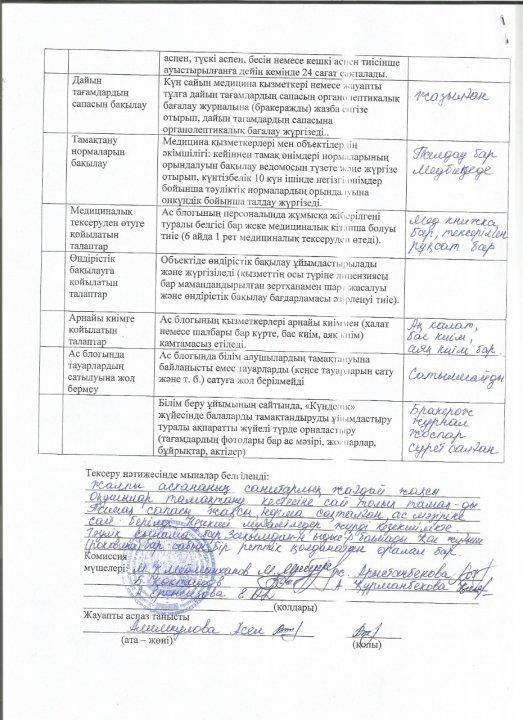 аспен, түскі аспен, бесін немесе кешкі аспен тиісінше
ауыстырылғанға дейін кемінде 24 сағат сақталады.
Дайын
тағамдардың
сапасын бақылау
Күн сайын медицина қызметкері немесе жауапты
тұлға дайын тағамдардың сапасын органолептикалық
бағалау журналына (бракераждық) жазба енгізе
отырып, дайын тағамдардың сапасына
органолептикалық бағалау жүргізеді..
жазылған
Тамақтану
нормаларын
бақылау
Медицина қызметкерлері мен объектілердің
әкімшілігі: кейіннен тамақ өнімдері нормаларының
орындалуын бақылау ведомосын түзете және жүргізе
отырып, күнтізбелік 10 күн ішінде негізгі өнімдер
бойынша тәуліктік нормалардың орындалуына
онкүндік бойынша талдау жүргізеді.
Талдау бар
Медбикеде
Медициналық
тексеруден өтуге
қойылатын
талаптар
Ас блогының персоналында жұмысқа жіберілгені
туралы белгісі бар жеке медициналық кітапша болуы
тиіс (6 айда 1 рет медициналық тексеруден өтеді).
Мед книжка
бар, тексерілген
рұқсат бар
Өндірістік
бақылауға
қойылатын
талаптар
Объектіде өндірістік бақылау ұйымдастырылады
және жүргізіледі (қызметтің осы түріне лицензиясы
бар мамандандырылған зертханамен шарт жасалуы
және өндірістік бақылау бағдарламасы әзірленуі тиіс).
Арнайы киімге
қойылатын
талаптар
Ас блогының қызметкерлері арнайы киіммен (халат
немесе шалбары бар күрте, бас киім, аяқ киім)
қамтамасыз етіледі.
Ақ халат,
бас киім,
аяқ киім бар
Ас блогында
тауарлардың
сатылуына жол
бермеу
Ас блогында білім алушылардың тамақтануына
байланысты емес тауарларды (кеңсе тауарларын сату
және т. б.) сатуға жол берілмейді
Сатылмайды
Білім беру ұйымының сайтында, «Күнделік»
жүйесінде балаларды тамақтандыруды ұйымдастыру
туралы ақпаратты жүйелі түрде орналастыру
(тағамдардың фотолары бар ас мәзірі, жоспарлар,
бұйрықтар, актілер)
Бракераж
журнал
жоспар
суретталған
Тексеру нәтижесінде мыналар белгіленді:
жалпы асхананың санитарлық жағдай жақсы
Оқушылар тамақтану кестесіне сай толық тамақ-ды
сапасы жақсы норма сақталған, ас мәзіріне
сай беріледі. Кезекші мұғалімдер жүреді кезекшілікте.
бар бір реттік қолданатын орамал бар
Комиссия
мүшелері:
Арыстанбекова
Құрманбекова
(қолдары)
Жауапты аспаз танысты
Алимкулова Асел
(ата – жөні)
(қолы)